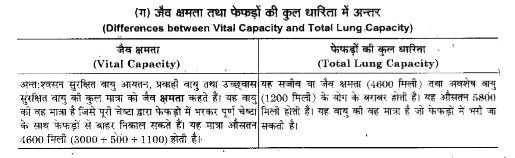 (ग) जैव क्षमता तथा फेफड़ों की कुल धारिता में अन्तर
(Differences between Vital Capacity and Total Lung Capacity)
जैव क्षमता
(Vital Capacity)
अन्तःश्वसन सुरक्षित वायु आयतन, प्रवाही वायु तथा उच्छ्वास
सुरक्षित वायु की कुल मात्रा को जैव क्षमता कहते हैं। यह वायु
की वह मात्रा है जिसे पूरी चेष्टा द्वारा फेफड़ों में भरकर पूर्ण चेष्टा
के साथ फेफड़ों से बाहर निकाल सकते हैं। यह मात्रा औसतन
4600 मिली (3000 + 500 + 1100) होती है।
फेफड़ों की कुल धारिता
(Total Lung Capacity)
यह सजीव या जैव क्षमता (4600 मिली) तथा अवशेष वायु
(1200 मिली) के योग के बराबर होती है। यह औसतन 5800
मिली होती है। यह वायु की वह मात्रा है जो फेफड़ों में भरी जा
सकती है।